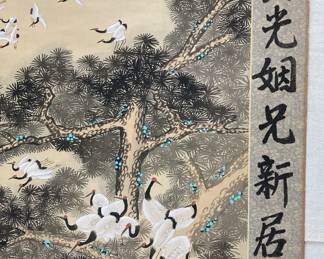 光姻兄新居